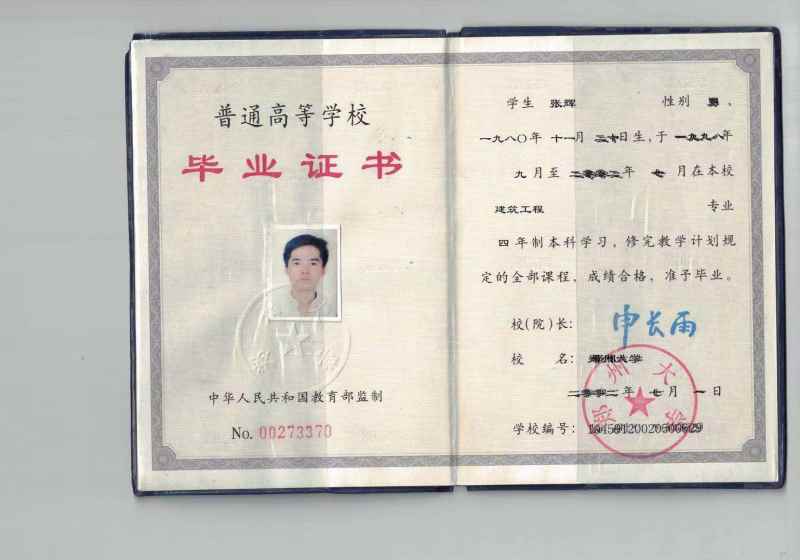 普通高等学校
毕业证书
中华人民共和国教育部监制
No. 00273370
学生 张辉 性别 男、
一九八〇年 十一月 二十日生,于 一九九八年
九月至 二零零二年 七 月在本校
建筑工程 专业
四 年制本科学习,修完教学计划规
定的全部课程,成绩合格,准予毕业。
校(院)长: 申长雨
校 名: 郑州大学
二零零二年 七 月 一 日
学校编号:
郑州大学